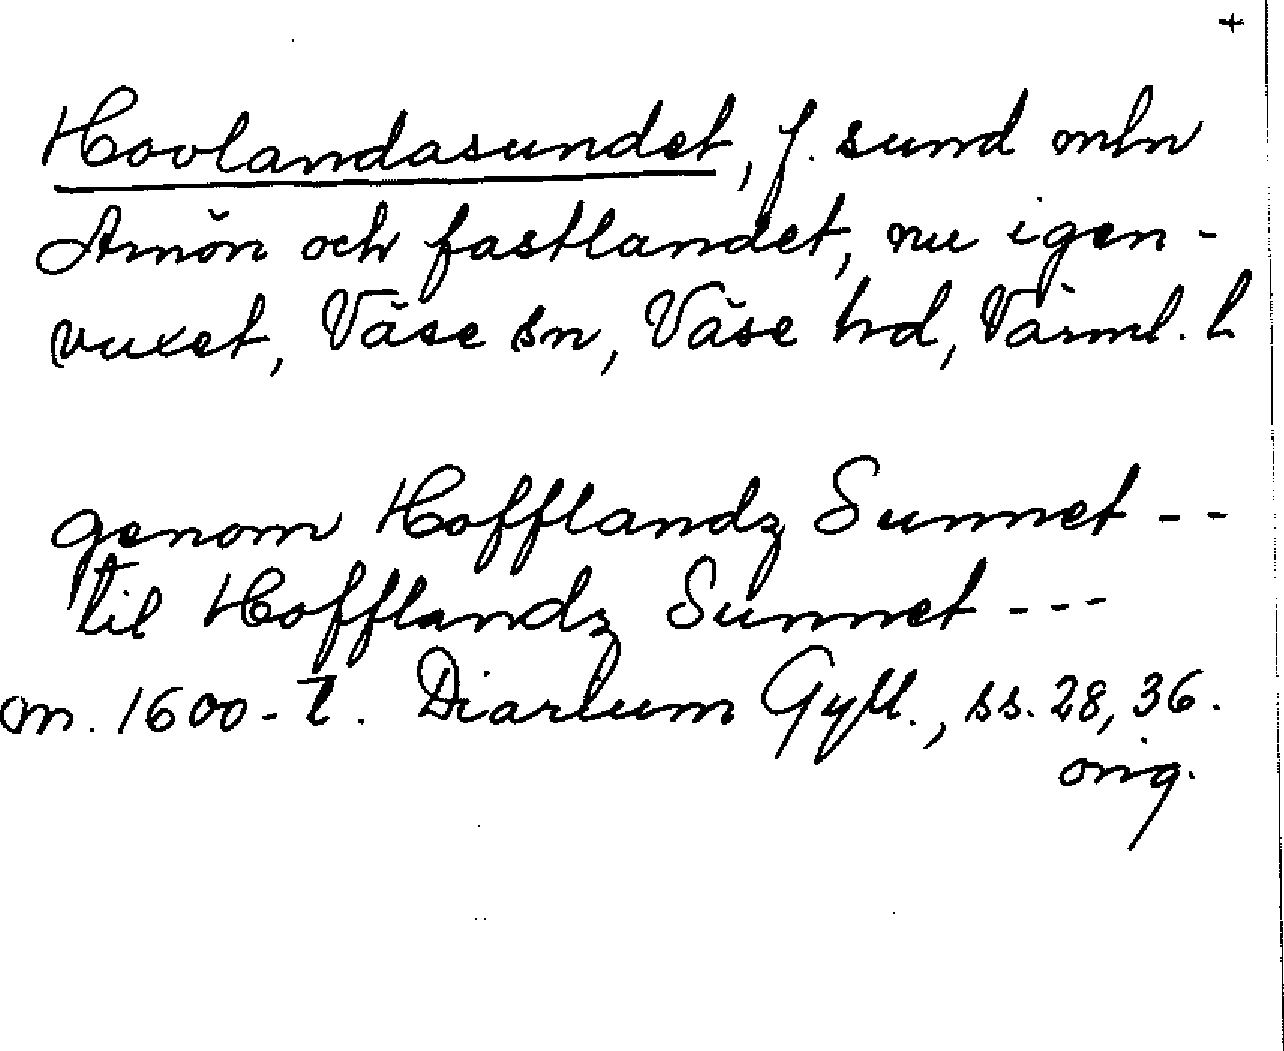 +
Hovlandasundet, f. sund mln
Arnön och fastlandet, nu igen-
vuxet, Väse sn, Väse hd, Värml. l
genom Hofflandz Sunnet --
til Hofflandz Sunnet ---
m. 1600-t. Diarium Gyll., ss. 28, 36.
orig.